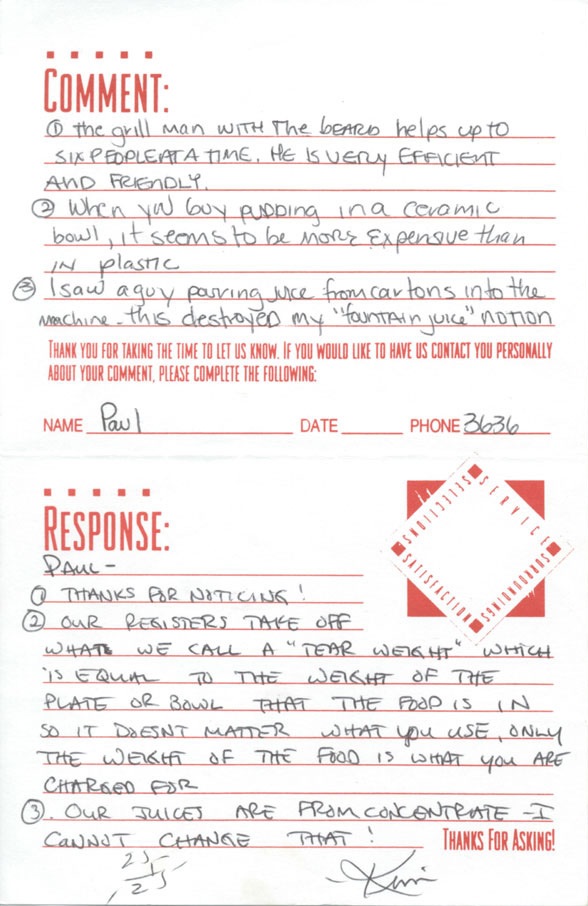 COMMENT:
① the grill man WITH The BEARD helps up to
SIX PEOPLE AT A TIME. HE IS VERY EFFICIENT
AND FRIENDLY.
② When you buy pudding in a ceramic
bowl, it seems to be more expensive than
IN plastic
③ I saw a guy pouring juice from cartons into the
machine - this destroyed my "fountain juice" notion
THANK YOU FOR TAKING THE TIME TO LET US KNOW. IF YOU WOULD LIKE TO HAVE US CONTACT YOU PERSONALLY
ABOUT YOUR COMMENT, PLEASE COMPLETE THE FOLLOWING:
NAME Paul DATE PHONE 3636
SERVICE
SURROUNDINGS
SATISFACTION
SELECTIONS
RESPONSE:
PAUL-
① THANKS FOR NOTICING!
② OUR REGISTERS TAKE OFF
WHAT WE CALL A "TEAR WEIGHT" WHICH
IS EQUAL TO THE WEIGHT OF THE
PLATE OR BOWL THAT THE FOOD IS IN
SO IT DOESNT MATTER WHAT YOU USE, ONLY
THE WEIGHT OF THE FOOD IS WHAT YOU ARE
CHARGED FOR
③. OUR JUICES ARE FROM CONCENTRATE - I
CANNOT CHANGE THAT! THANKS FOR ASKING!